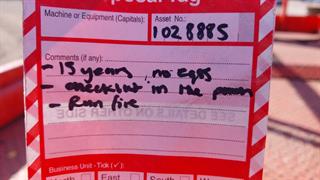 Machine or Equipment (Capitals):
Asset No.:
1028885
Comments (if any):
- 15 years, no
- checklist in the
- Run fire
SEE DETAILS ON OTHER SIDE
Business Unit - Tick (✓):
East
South